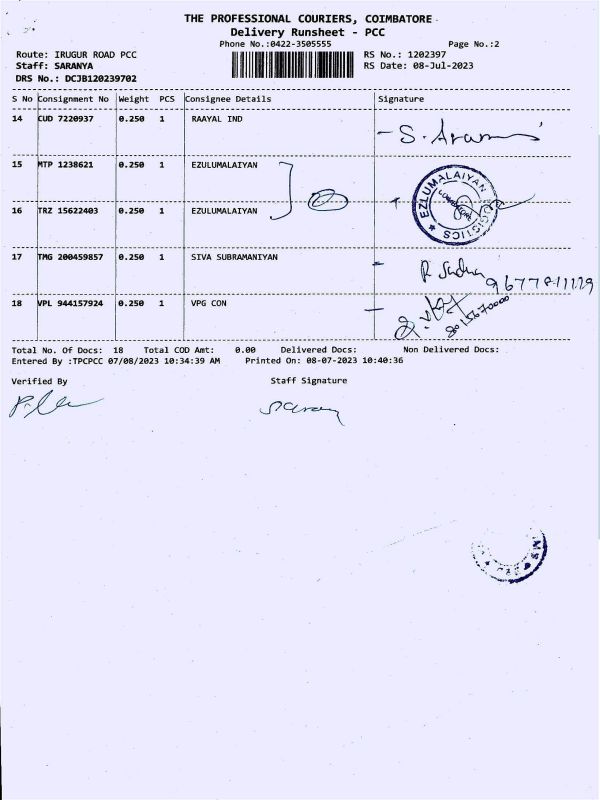 THE PROFESSIONAL COURIERS, COIMBATORE
Delivery Runsheet - PCC
Phone No.:0422-3505555 Page No.:2
Route: IRUGUR ROAD PCC RS No.: 1202397
Staff: SARANYA RS Date: 08-Jul-2023
DRS No.: DCJB120239702
S No Consignment No Weight PCS Consignee Details Signature
14 CUD 7220937 0.250 1 RAAYAL IND
15 MTP 1238621 0.250 1 EZULUMALAIYAN
EZLUMALAIYAN LOGISTICS
16 TRZ 15622403 0.250 1 EZULUMALAIYAN
17 TMG 200459857 0.250 1 SIVA SUBRAMANIYAN
18 VPL 944157924 0.250 1 VPG CON
Total No. Of Docs: 18 Total COD Amt: 0.00 Delivered Docs: Non Delivered Docs:
Entered By :TPCPCC 07/08/2023 10:34:39 AM Printed On: 08-07-2023 10:40:36
Verified By Staff Signature